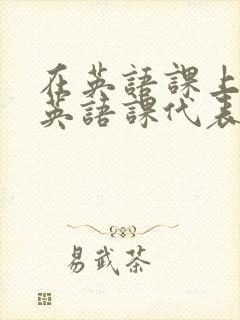 在英語課上
英語課代表
易武茶